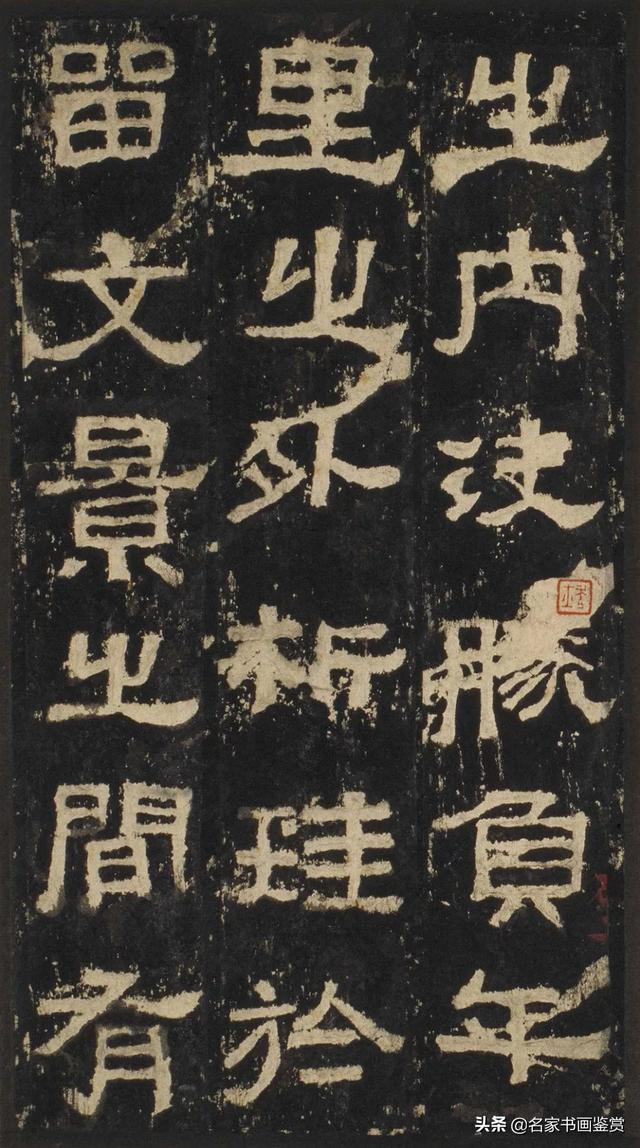 之内决勝負年
里之外析珪於
留文景之間有
头条 @名家书画鉴赏